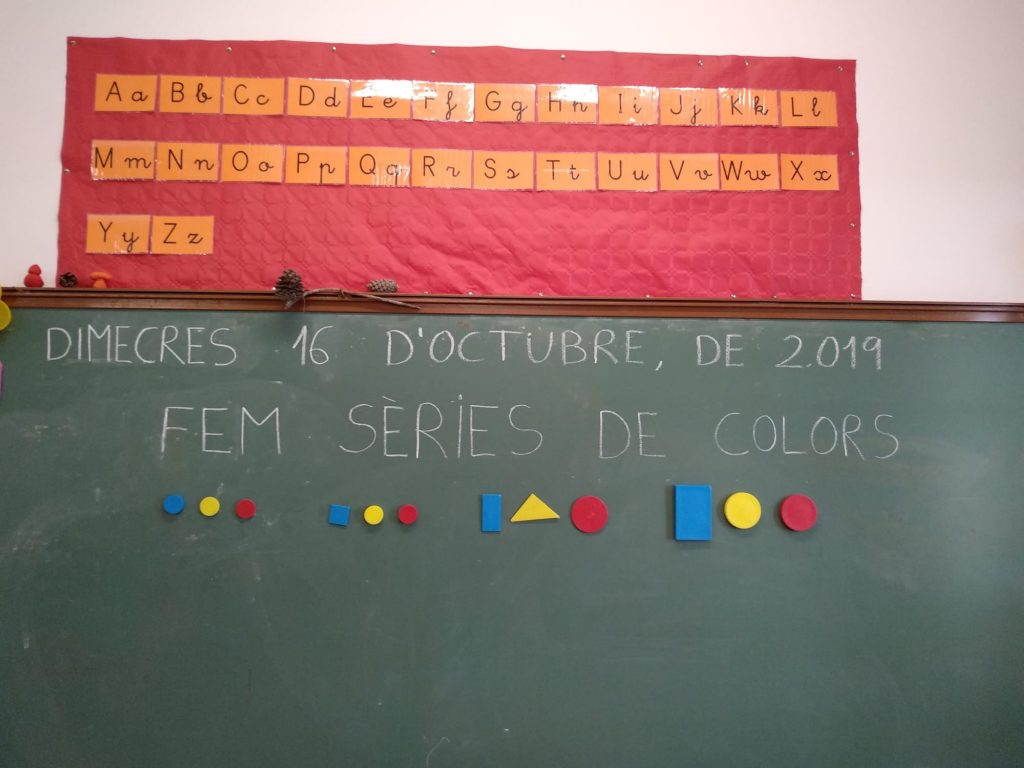 Aa Bb Cc Dd Ee Ff Gg Hh Ii Jj Kk Ll
Mm Nn Oo Pp Qq Rr Ss Tt Uu Vv Ww Xx
Yy Zz
DIMECRES 16 D'OCTUBRE, DE 2.019
FEM SÈRIES DE COLORS